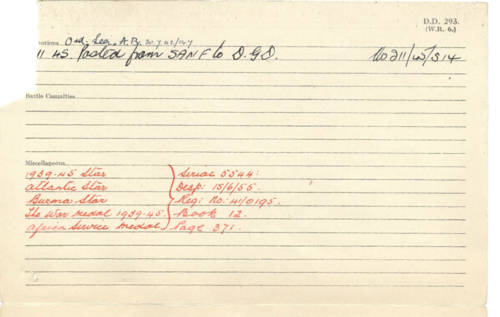 D.D. 293.
(W.R. 6.)
Ord. Sea. A.B.
11 45. Posted from SANF to D.G.D.
Battle Casualties
Miscellaneous
1939-45 Star
Atlantic Star
Burma Star
The War Medal 1939-45
Africa Service Medal
Serial 5544:
Desp: 15/6/55.
Regi No: 41/0195.
Book 12.
Page 371.